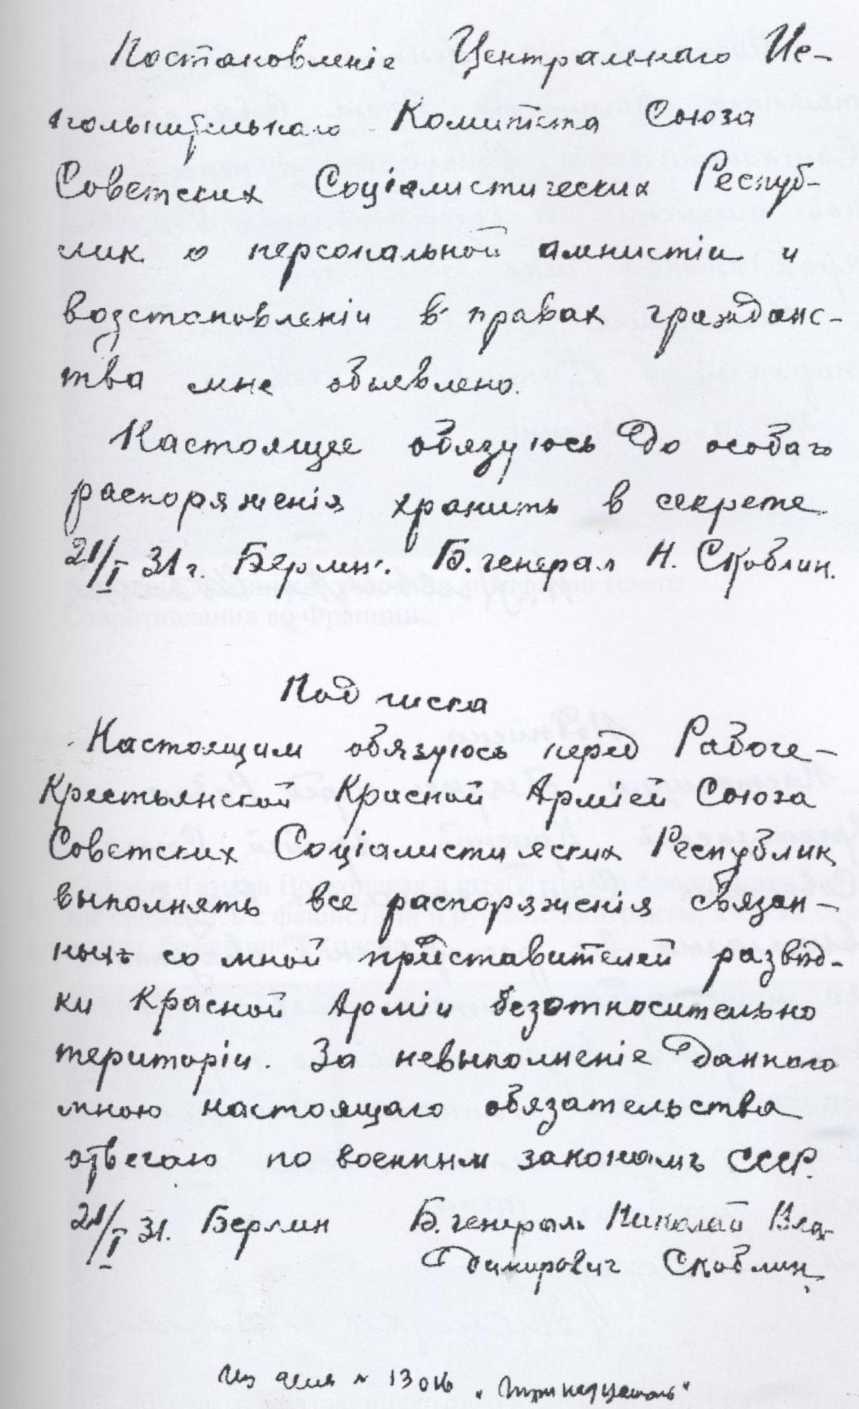 Постановленіе Центральнаго Ис-
полнительнаго Комитета Союза
Советских Соціалистических Респуб-
лик о персональной амнистіи и
возстановленіи в правах гражданс-
тва мне объявлено.
Настоящее обязуюсь до особаго
распоряженія хранить в секрете
21/I 31 г. Берлин. Б. генерал Н. Скоблин.
Подписка
Настоящим обязуюсь перед Рабоче-
Крестьянской Красной Арміей Союза
Советских Соціалистических Республик
выполнять все распоряженія связан-
ныхъ со мной представителей развѣд-
ки Красной Арміи безотносительно
територіи. За невыполненіе даннаго
мною настоящаго обязательства
отвечаю по военным законамъ СССР.
21/I 31. Берлин Б. генералъ Николай Вла-
димирович Скоблин.
Из дела № 13 ОГ